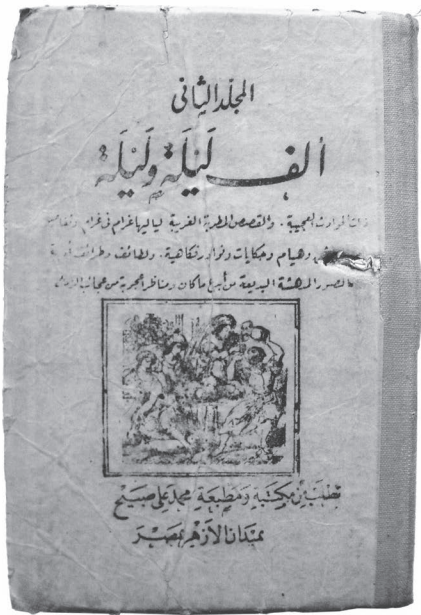 المجلد الثانى
ألف ليلة وليلة
ذات الحوادث العجيبة، والقصص المطربة الغريبة لياليها غرام فى غرام
وهيام وحكايات ونوادر فكاهية، ولطائف وطرائف أدبية
بالصور المدهشة البديعة من أبدع ما كان ومناظر أعجوبة من عجائب الزمان
تطلب من مكتبة ومطبعة محمد على صبيح
بميدان الأزهر بمصر